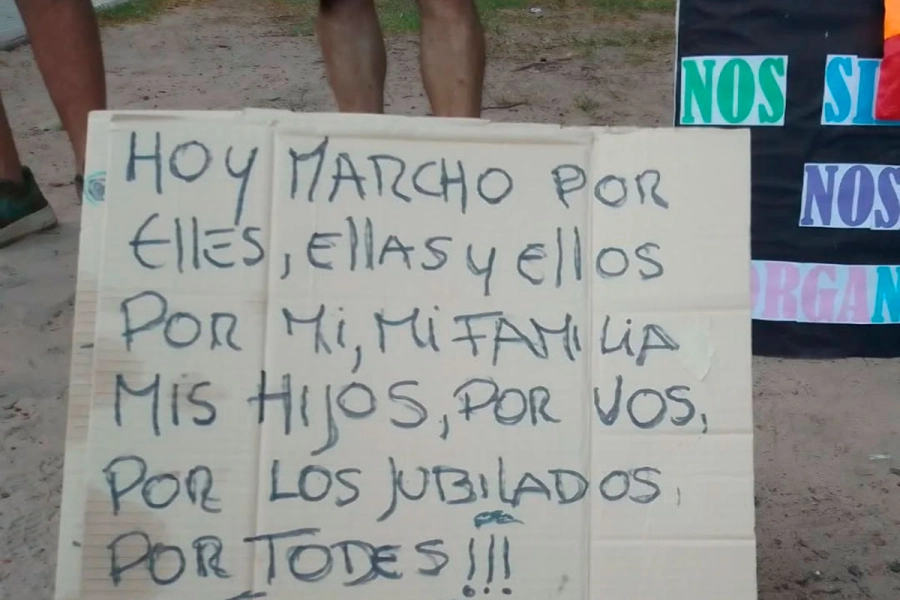 HOY MARCHO POR
ElleS, EllAS y Ellos
POR Mi, Mi FAMiLiA
MiS HIJOS, POR VOS,
POR LOS JUBiLADOS,
POR TODES!!!
NOS SI
NOS
ORGAN